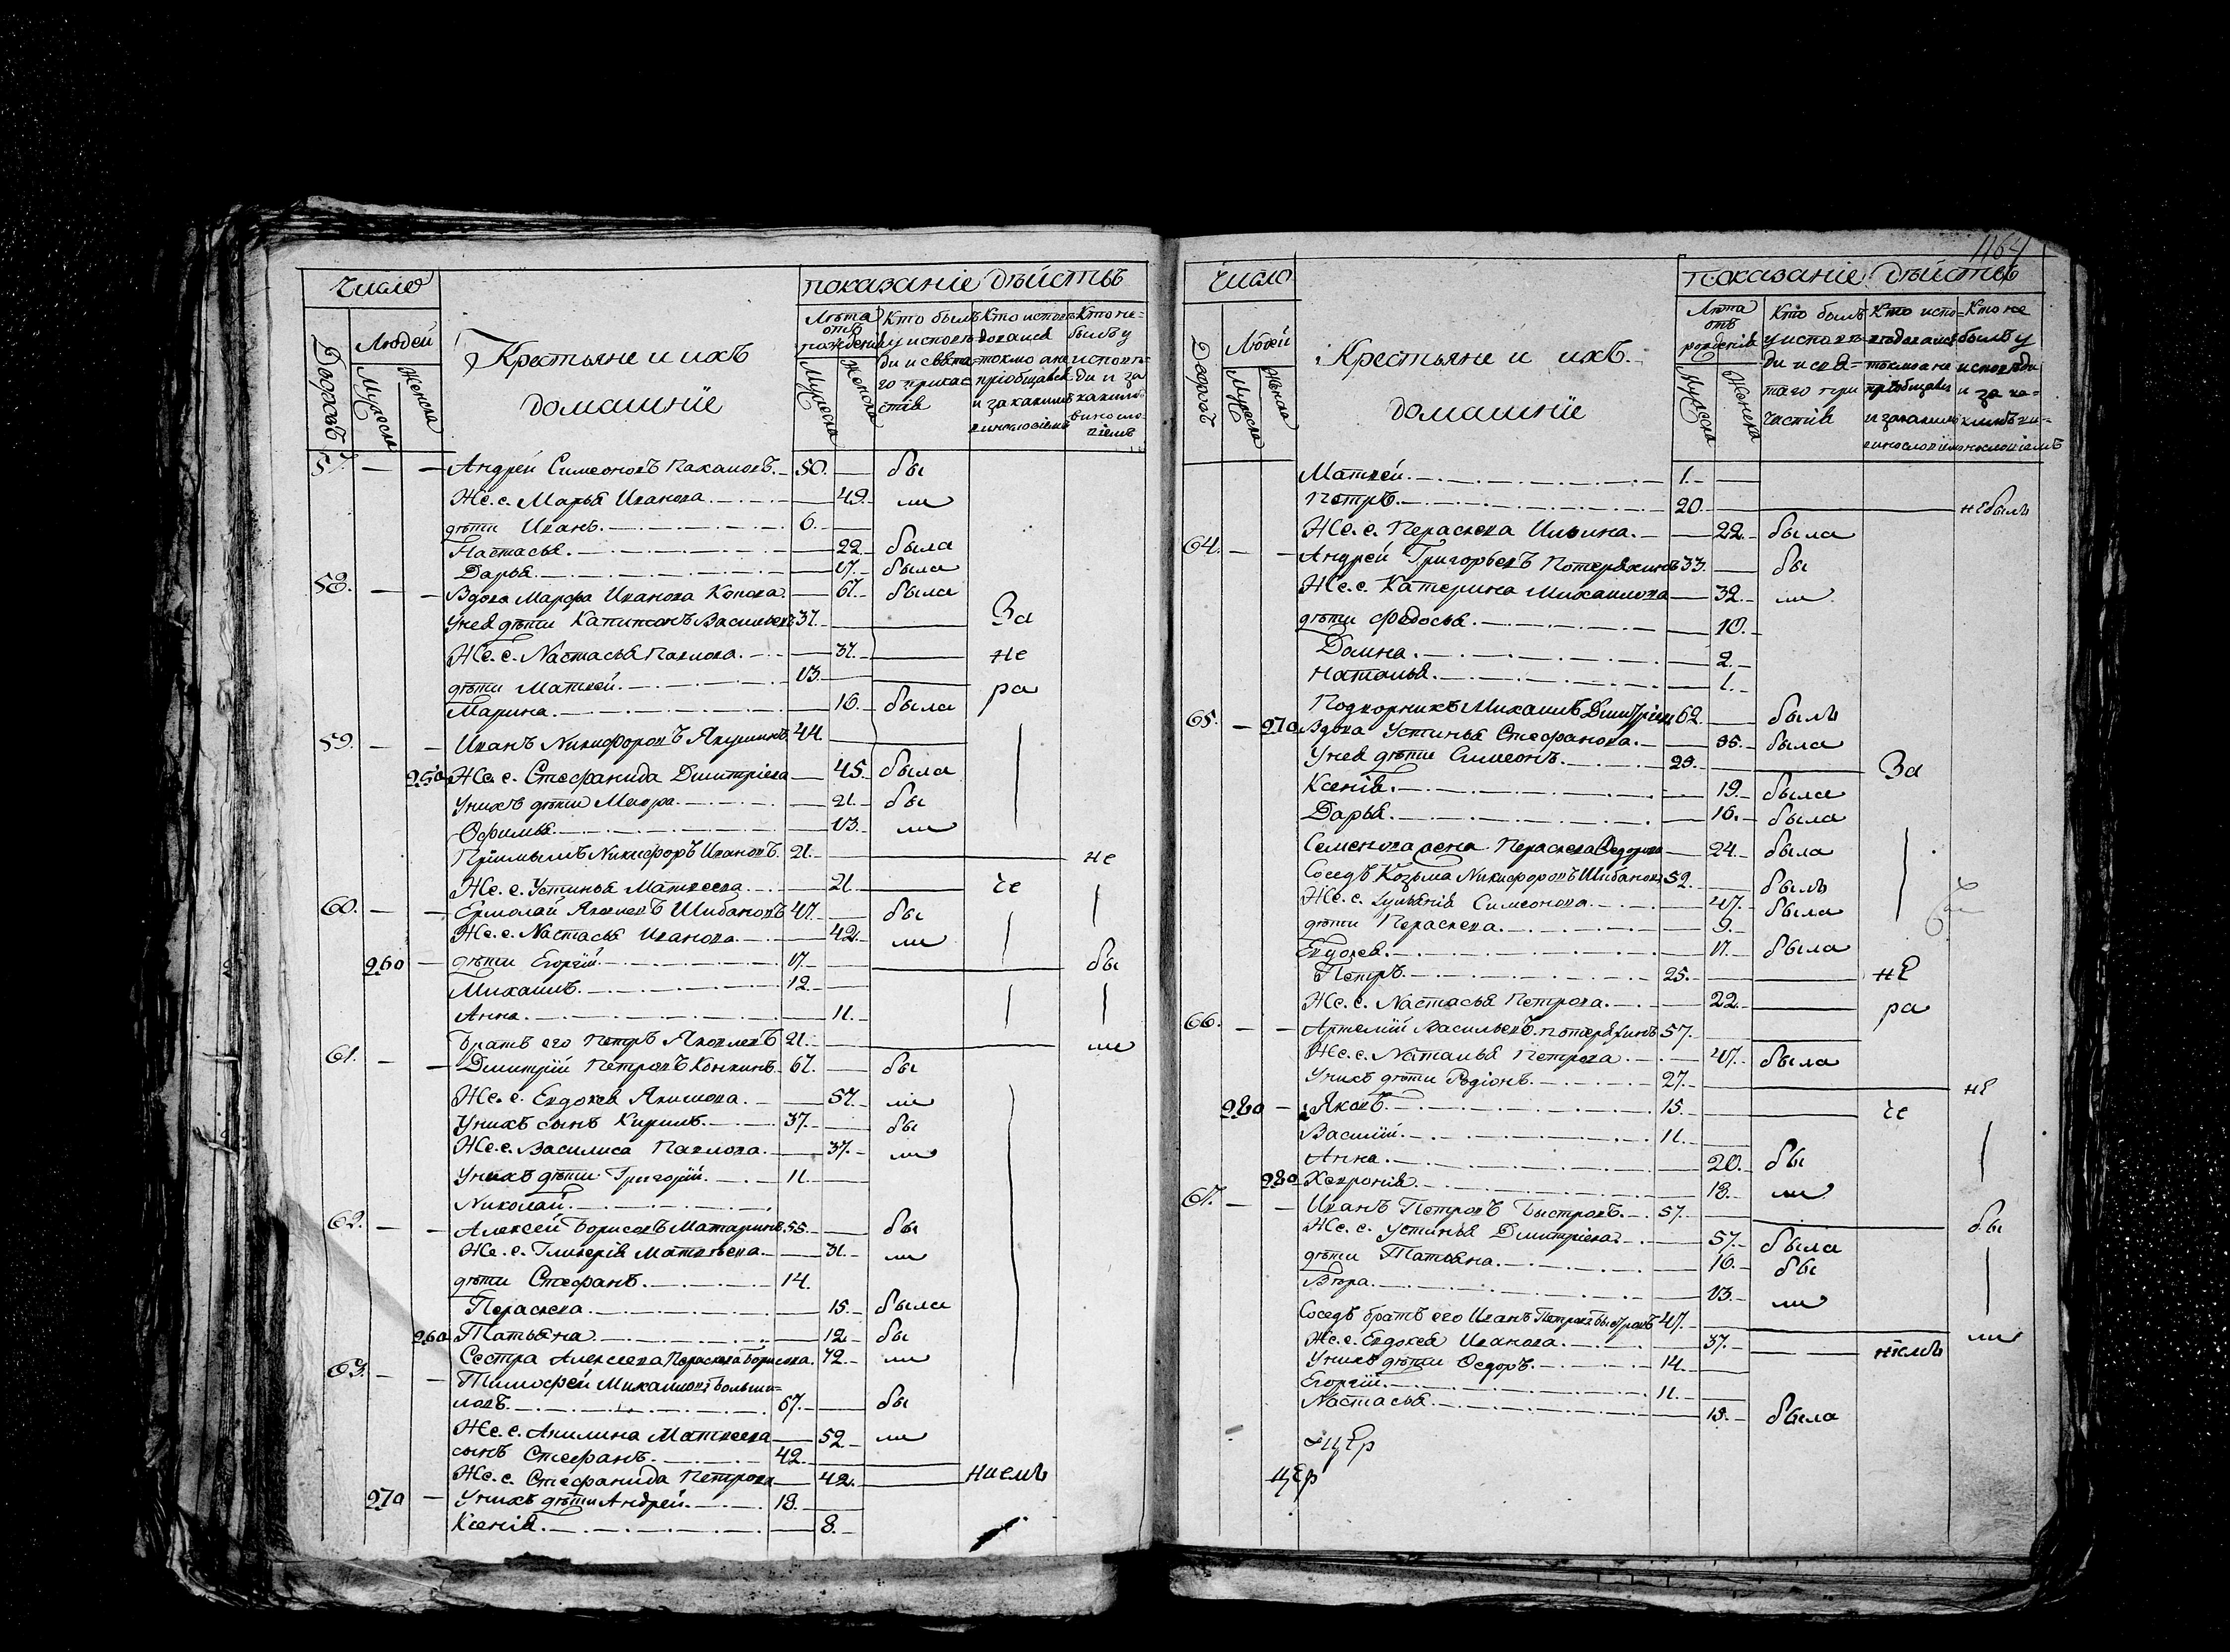 Число
показаніе дѣйствъ
Дворовъ
Людей
Мужеска
Женска
Крестьяне и ихъ
домашніе
Лѣта отъ рожденія
Мужеска
Женска
Кто былъ у исповѣди и святаго причастія
Кто исповѣдовался токмо а не пріобщался и за какимъ винословіемъ
Кто не былъ у исповѣди и за какимъ винословіемъ
57. — — Андрей Симеоновъ 50. — бы
Же. е. Марья Иванова — 49. ли
дѣти Иванъ 6. —
Настасья — 22. была
Дарья — 17. была
58. — — Вдова Марфа Иванова — 67. была
Унея дѣти Капитонъ Васильевъ 37. — За
Же. е. Nастасья Павлова — 37. — не
дѣти Матвей 13. — ра
Марина — 16. была
59. — — Иванъ Nикифоровъ Якушинъ 44. —
250 Же. е. Стефанида Димитріева — 45. была
Унихъ дѣти Мавра — 21. бы
Офимья — 13. ли
Пріимышъ Nикифоръ Ивановъ 21. — не
Же. е. Устинья Матвеева — 21. — че
60. — — Ермолай Яковлевъ Шибановъ 47. — бы
Же. е. Nастасья Иванова — 42. ли
260 — дѣти Егоргій 17. — бы
Михаилъ 12. —
Анна — 11.
Братъ его Петръ Яковлевъ 21. — ли
61. — — Димитрій Петровъ Конкинъ 67. — бы
Же. е. Евдокея Якимова — 57. ли
Унихъ сынъ Кирилъ 37. — бы
Же. е. Василиса Павлова — 37. ли
Унихъ дѣти Григорій 11. —
Nиколай
62. — — Алексей Борисовъ Матаринъ 55. — бы
Же. е. Гликерія Матвѣева — 31. ли
дѣти Стефанъ 14.
Параскева — 15. была
260 Татьяна — 12. бы
Сестра Алексеева Параскева Борисова 72. ли
63. — — Тимофей Михаиловъ Больша=
ковъ 67. — бы
Же. е. Акилина Матвеева — 52. ли
сынъ Стефанъ 42. —
Же. е. Стефанида Петрова — 42. — ніемъ
270 — Унихъ дѣти Андрей 18. —
Ксенія — 8.
1164
Число
показаніе дѣйствъ
Дворовъ
Людей
Мужеска
Женска
Крестьяне и ихъ
домашніе
Лѣта отъ рожденія
Мужеска
Женска
Кто былъ у исповѣди и святаго причастія
Кто исповѣдовался токмо а не пріобщался и за какимъ винословіемъ
Кто не былъ у исповѣди и за какимъ винословіемъ
Матвей 1. —
Петръ 20. — небылъ
Же. е. Параскева Ильина — 22. была
64. — — Андрей Григорьевъ Потеряхинъ 33. — бы
Же. е. Катерина Михаилова — 32. ли
дѣти Федосья — 10.
Домна — 2.
Наталья — 1.
Подворникъ Михаилъ Димитріевъ 62. — былъ
65. — 270 Вдова Устинья Стефанова — 95. была
Унея дѣти Симеонъ 29. — За
Ксенія — 19. была
Дарья — 16. была
Семенова жена Параскева Федорова — 24. была
Соседъ Козьма Nикифоровъ Шибановъ 52. — былъ
Же. е. Ульянія Симеонова — 47. была
дѣти Параскева — 9.
Евдокея — 17. была
Петръ 25. — не
Же. е. Nастасья Петрова — 22. — ра
66. — — Артемій Васильевъ Потеряхинъ 57. —
Же. е. Nаталья Петрова — 47. была
Унихъ дѣти Родіонъ 27. — не
280 — Яковъ 15. — че
Василій 11. —
Анна — 20. бы
280 Хавронія — 18. ли
67. — — Иванъ Петровъ Быстровъ 57. — бы
Же. е. Устинья Димитріева — 57. была
дѣти Татьяна — 16. бы
Вѣра — 13. ли
Соседъ братъ его Иванъ Петровъ Быстровъ 47. — ли
Же. е. Евдокея Иванова — 37. — ніемъ
Унихъ дѣти Ѳедоръ 14. —
Егоргій 11. —
Nастасья — 18. была
цер
цер